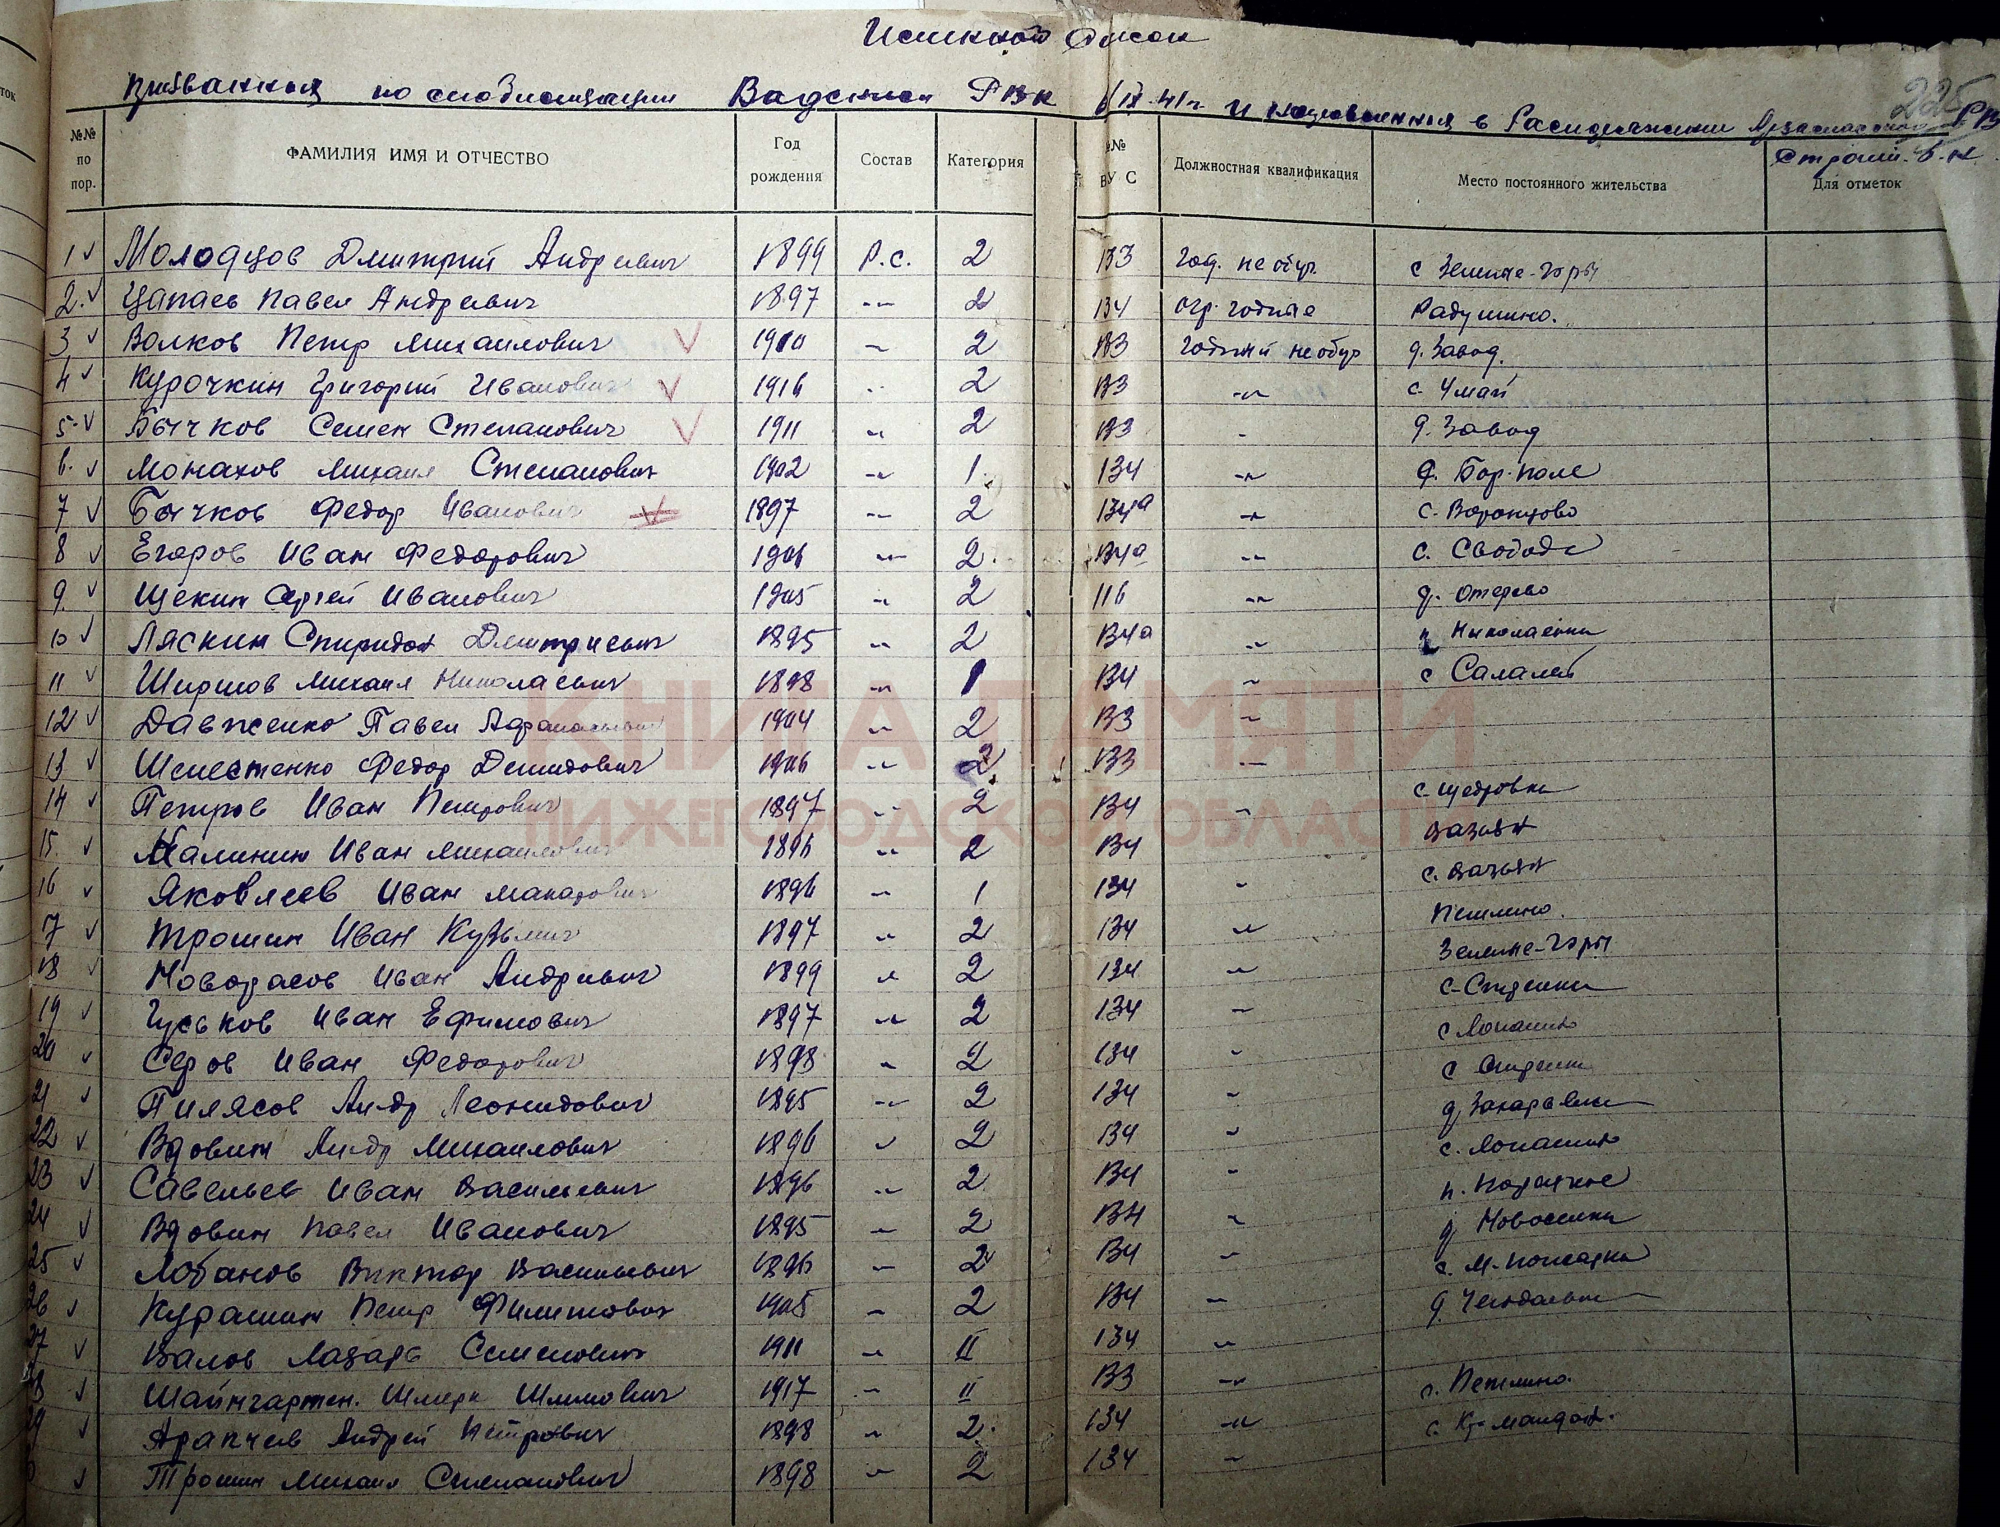 Именной список
призванных по мобилизации Вадским РВК 6/IX-41г и направленных в распоряжение Арзамасского РВ
225
Строит. б-н
№№ по пор. ФАМИЛИЯ ИМЯ И ОТЧЕСТВО Год рождения Состав Категория №№ ВУС Должностная квалификация Место постоянного жительства Для отметок
1 Молодцов Дмитрий Андреевич 1899 Р.с. 2 133 год. не обуч. с Зеленые-горы
2. Цапаев Павел Андреевич 1897 -"- 2 134 огр. годные Радушино.
3 Волков Петр Михаилович 1910 -"- 2 133 годный необуч д. Завод.
4 Курочкин Григорий Иванович 1916 -"- 2 133 -"- с. Умай
5. Бычков Семен Степанович 1911 -"- 2 133 - д. Завод
6. Монахов Михаил Степанович 1902 -"- 1. 134 -"- д. Бор-поле
7 Бычков Федор Иванович 1897 -"- 2 134а -"- с. Воронцово
8 Егоров Иван Федорович 1906 -"- 2. 134а -"- с. Свобода
9. Щекин Сергей Иванович 1905 -"- 2 116 -"- д. Отерево
10 Ляскин Спиридон Дмитриевич 1895 -"- 2 134а -"- Николаевка
11 Ширшов Михаил Николаевич 1898 -"- 1 134 -"- с Салалей
12 Давженко Павел Афанасьевич 1904 -"- 2 133 -"-
13 Шелестенко Федор Демидович 1906 -"- 2. 133 -"-
14 Петров Иван Петрович 1897 -"- 2 134 -"- с. Щедровка
15 Малинин Иван Михаилович 1896 -"- 2 134 Вазьян
16 Яковлев Иван Макарович 1896 -"- 1 134 -"- с. Вазьян
17 Трошин Иван Кузьмич 1897 -"- 2 134 -"- Петлино.
18 Новорасов Иван Андреевич 1899 -"- 2 134 -"- Зеленые-Горы
19 Гуськов Иван Ефимович 1897 -"- 2 134 -"- с-Стрелка
20 Серов Иван Федорович 1898 -"- 2 134 -"- с Лопатино
21 Пилясов Андр Леонидович 1895 -"- 2 134 -"- с Стрелка
22 Вдовин Андр Михаилович 1896 -"- 2 134 -"- д Захарьевка
23 Савельев Иван Васильевич 1896 -"- 2 134 -"- с. Лопатино
24 Вдовин Павел Иванович 1895 -"- 2 134 -"- п.
25 Лобанов Виктор Васильевич 1896 -"- 2 134 -"- д Новоселки
26 Курашин Петр Филипович 1905 -"- 2 134 -"- с. М-Пожарки
27 Валов Лазарь Семенович 1911 -"- II 134 -"- д.
28 Шайнгартен. Шмерк Шлимович 1917 -"- II 133 -"- с. Петлино.
29 Арапчев Андрей Петрович 1898 -"- 2. 134 -"- с. Кр-
Трошин Михаил Степанович 1898 -"- 2 134 -"-
КНИГА ПАМЯТИ
НИЖЕГОРОДСКОЙ ОБЛАСТИ